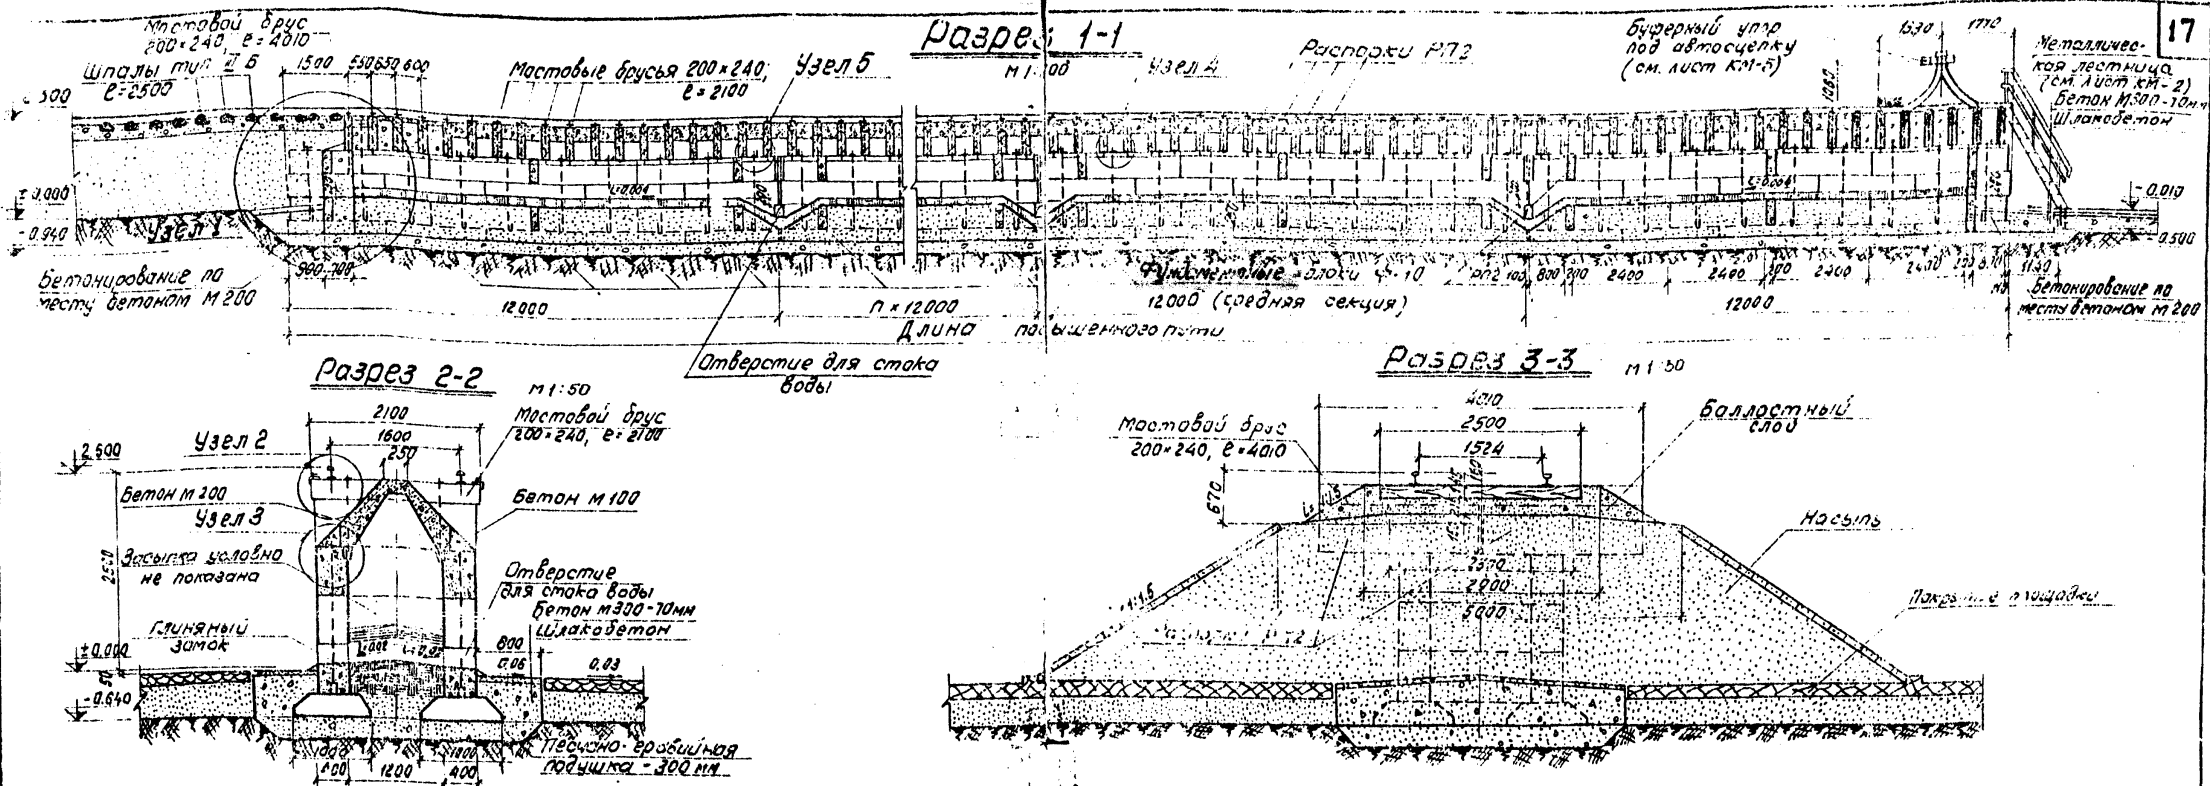 17
Разрез 1-1
М 1:100
Мостовой брус
200×240, ℓ=4010
Шпалы тип II Б
ℓ=2500
1500 550 650 600
Мостовые брусья 200×240,
ℓ=2100
Узел 5
Узел 4
Распорки РП2
Буферный упор
под автосцепку
(см. лист КМ-5)
1530 1770
Металличес-
кая лестница
(см. лист КМ-2)
Бетон М300-70мм
Шлакобетон
1080
±0.000
-0.940
Узел 1
i=0.004
i=0.004
-0.010
-0.500
Бетонирование по
месту бетоном М200
900 700
Фундаментные блоки Ф-10
РП2 100 800 200 2400 2400 200 2400 2400
12000
n×12000
12000 (средняя секция)
12000
Бетонирование по
месту бетоном М200
Длина повышенного пути
Отверстие для стока
воды
Разрез 2-2
М 1:50
2100
1600
250
Мостовой брус
200×240, ℓ=2100
Узел 2
2.500
Бетон М200
Бетон М100
Узел 3
Засыпка условно
не показана
2500
Отверстие
для стока воды
Бетон М300-70мм
Шлакобетон
Глиняный
замок
±0.000
50
-0.640
i=0.02 i=0.02
800
0.06
0.03
1000 1000
400 1200 400
Песчано-гравийная
подушка-300мм
Разрез 3-3
М 1:50
4010
2500
1524
Мостовой брус
200×240, ℓ=4010
Балластный
слой
670
Насыпь
1:1.5
2370
2900
5000
Покрытие площадки